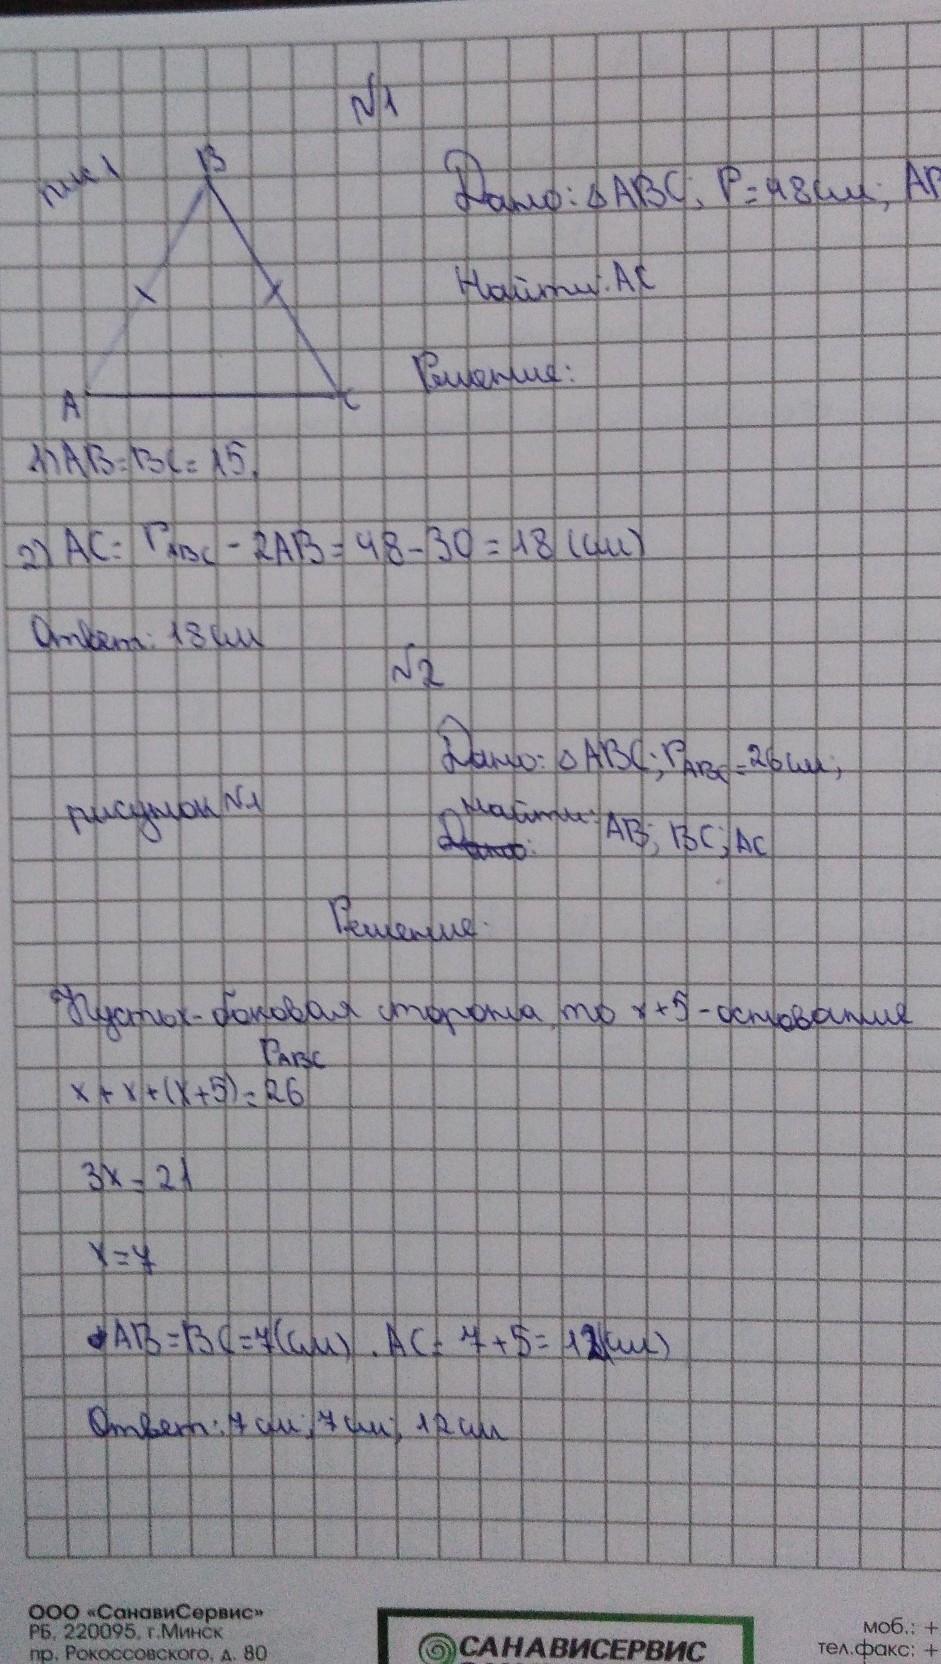 №1
рис 1
B
Дано: △ABC; P=48см; AB
Найти: AC
Решение:
A
C
1) AB=BC=15.
2) AC= P_ABC - 2AB = 48-30 = 18 (см)
Ответ: 18 см
№2
Дано: △ABC; P_ABC = 26см;
рисунок №1
Найти: AB; BC; AC
Дано:
Решение:
Пусть x-боковая сторона, то x+5-основание
P_ABC
x+x+(x+5)=26
3x=21
x=7
AB=BC=7(см). AC= 7+5= 12(см)
Ответ: 7см; 7см; 12см
ООО «СанавиСервис»
РБ, 220095, г.Минск
пр. Рокоссовского, д. 80
САНАВИСЕРВИС
моб.: +
тел.факс: +